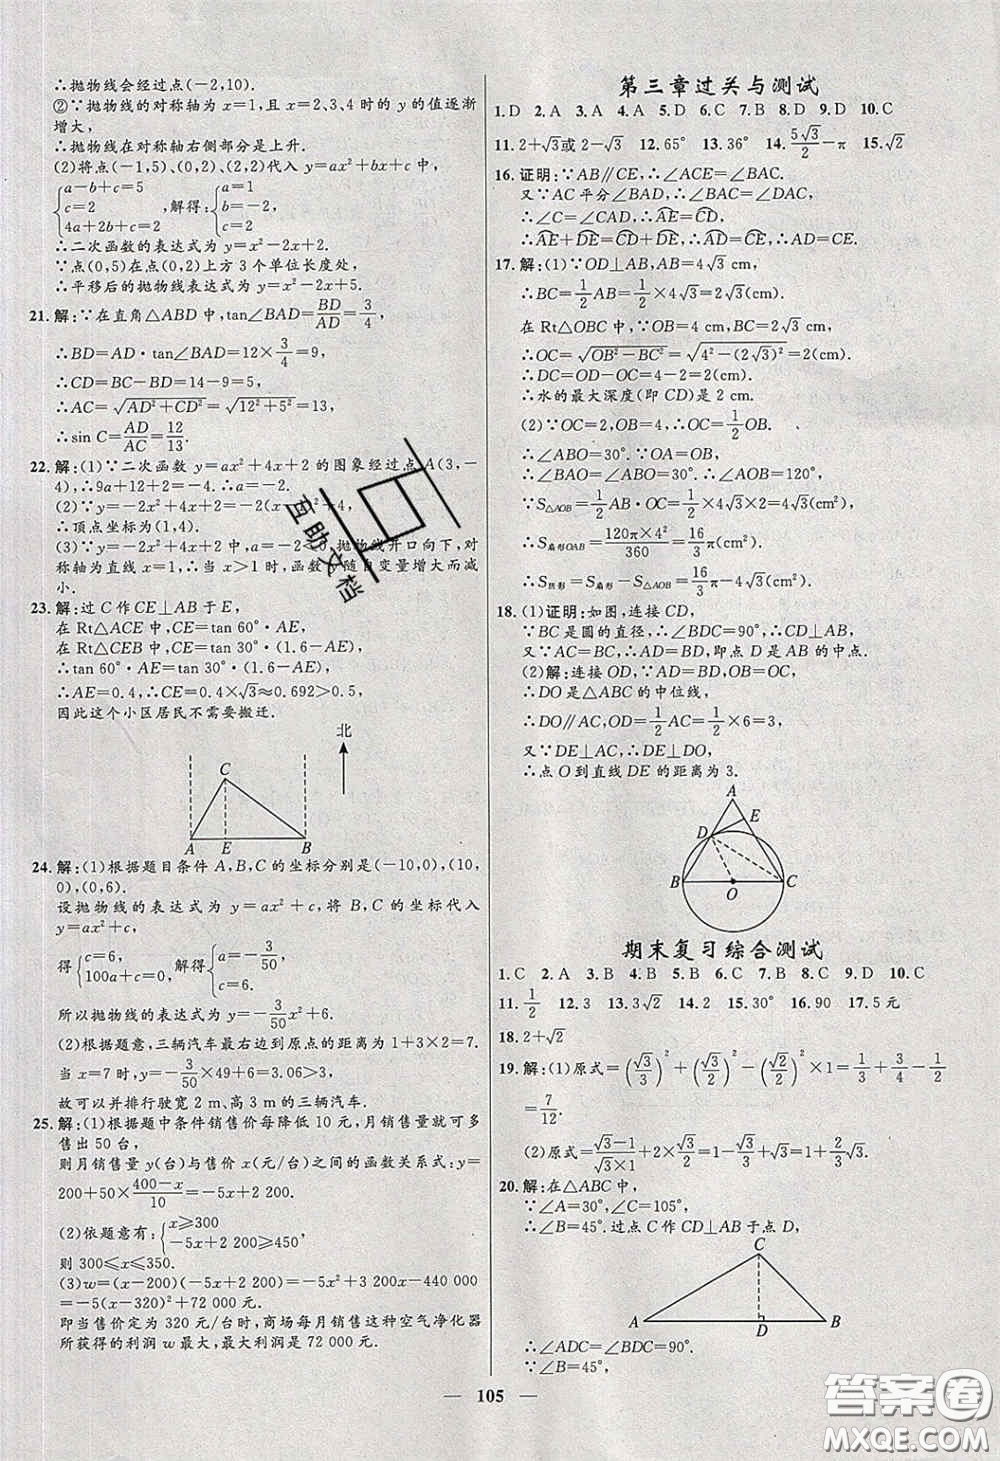 ∴抛物线会经过点(-2,10).
②∵抛物线的对称轴为x=1,且x=2、3、4时的y的值逐渐
增大,
∴抛物线在对称轴右侧部分是上升.
(2)将点(-1,5)、(0,2)、(2,2)代入y=ax²+bx+c中,
{a-b+c=5 c=2 4a+2b+c=2,解得:{a=1 b=-2 c=2
∴二次函数的表达式为y=x²-2x+2.
∵点(0,5)在点(0,2)上方3个单位长度处,
∴平移后的抛物线表达式为y=x²-2x+5.
21.解:∵在直角△ABD中,tan∠BAD=BD/AD=3/4,
∴BD=AD·tan∠BAD=12×3/4=9,
∴CD=BC-BD=14-9=5,
∴AC=√(AD²+CD²)=√(12²+5²)=13,
∴sin C=AD/AC=12/13.
22.解:(1)∵二次函数y=ax²+4x+2的图象经过点A(3,-
4),∴9a+12+2=-4.∴a=-2.
(2)∵y=-2x²+4x+2=-2(x-1)²+4,
∴顶点坐标为(1,4).
(3)∵y=-2x²+4x+2中,a=-2<0,抛物线开口向下,对
称轴为直线x=1,∴当x>1时,函数随自变量增大而减
小.
23.解:过C作CE⊥AB于E,
在Rt△ACE中,CE=tan 60°·AE,
在Rt△CEB中,CE=tan 30°·(1.6-AE),
∴tan 60°·AE=tan 30°·(1.6-AE),
∴AE=0.4,∴CE=0.4×√3≈0.692>0.5
因此这个小区居民不需要搬迁.
北
C
A E B
24.解:(1)根据题目条件A,B,C的坐标分别是(-10,0),(10,
0),(0,6).
设抛物线的表达式为y=ax²+c,将B,C的坐标代入
y=ax²+c,
得{c=6, 100a+c=0,解得{a=-3/50 c=6.
所以抛物线的表达式为y=-3/50x²+6.
(2)根据题意,三辆汽车最右边到原点的距离为1+3×2=7.
当x=7时,y=-3/50×49+6=3.06>3,
故可以并排行驶宽2 m、高3 m的三辆汽车.
25.解:(1)根据题中条件销售价每降低10元,月销售量就可多
售出50台,
则月销售量y(台)与售价x(元/台)之间的函数关系式:y=
200+50×(400-x)/10=-5x+2 200.
(2)依题意有:{x≥300 -5x+2 200≥450,
则300≤x≤350.
(3)w=(x-200)(-5x+2 200)=-5x²+3 200x-440 000
=-5(x-320)²+72 000.
即当售价定为320元/台时,商场每月销售这种空气净化器
所获得的利润w最大,最大利润是72 000元.
第三章过关与测试
1.D 2.A 3.A 4.A 5.D 6.C 7.B 8.D 9.D 10.C
11.2+√3或2-√3 12.65° 13.36° 14.5√3/2-π 15.√2
16.证明:∵AB∥CE,∴∠ACE=∠BAC.
又∵AC平分∠BAD,∴∠BAC=∠DAC,
∴∠C=∠CAD,∴AE=CD,
∴AE+DE=CD+DE,∴AD=CE.
17.解:(1)∵OD⊥AB,AB=4√3 cm,
∴BC=1/2AB=1/2×4√3=2√3(cm).
在Rt△OBC中,∵OB=4 cm,BC=2√3 cm,
∴OC=√(OB²-BC²)=√(4²-(2√3)²)=2(cm).
∴DC=OD-OC=4-2=2(cm).
∴水的最大深度(即CD)是2 cm.
(2)∵OC=2,OB=4,∴OC=1/2OB.
∴∠ABO=30°.∵OA=OB,
∴∠BAO=∠ABO=30°.∴∠AOB=120°,
∵S△AOB=1/2AB·OC=1/2×4√3×2=4√3(cm²),
∴S扇形OAB=120π×4²/360=16/3π(cm²).
∴S阴影=S扇形-S△AOB=(16/3π-4√3)(cm²).
18.(1)证明:如图,连接CD,
∵BC是圆的直径,∴∠BDC=90°,∴CD⊥AB,
又∵AC=BC,∴AD=BD,即点D是AB的中点.
(2)解:连接OD,∵AD=BD,OB=OC,
∴DO是△ABC的中位线,
∴DO∥AC,OD=1/2AC=1/2×6=3,
又∵DE⊥AC,∴DE⊥DO.
∴点O到直线DE的距离为3.
A
E
D
B O C
期末复习综合测试
1.C 2.A 3.B 4.B 5.B 6.C 7.A 8.B 9.D 10.C
11.1/2 12.3 13.3√2 14.2 15.30° 16.90 17.5元
18.2+√2
19.解:(1)原式=(√3/3)²+(√3/2)²-(√2/2)²×1=1/3+3/4-1/2=
7/12.
(2)原式=(√3-1)/(√3×1)+2×√3/2=(3+2√3)/3.
20.解:在△ABC中,
∵∠A=30°,∠C=105°
∴∠B=45°.过点C作CD⊥AB于点D,
C
A D B
∴∠ADC=∠BDC=90°.
∵∠B=45°,
105
互助文档
答案圈
MXQE.COM